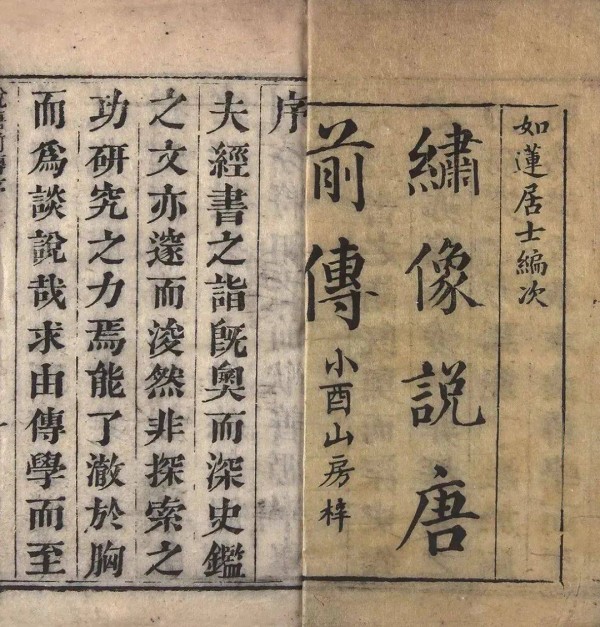 如蓮居士編次
繡像說唐
前傳
小酉山房梓
序
夫經書之詣旣奧而深史鑑
之文亦邃而浚然非探索之
功研究之力焉能了澈於胸
而爲談說哉求由傳學而至